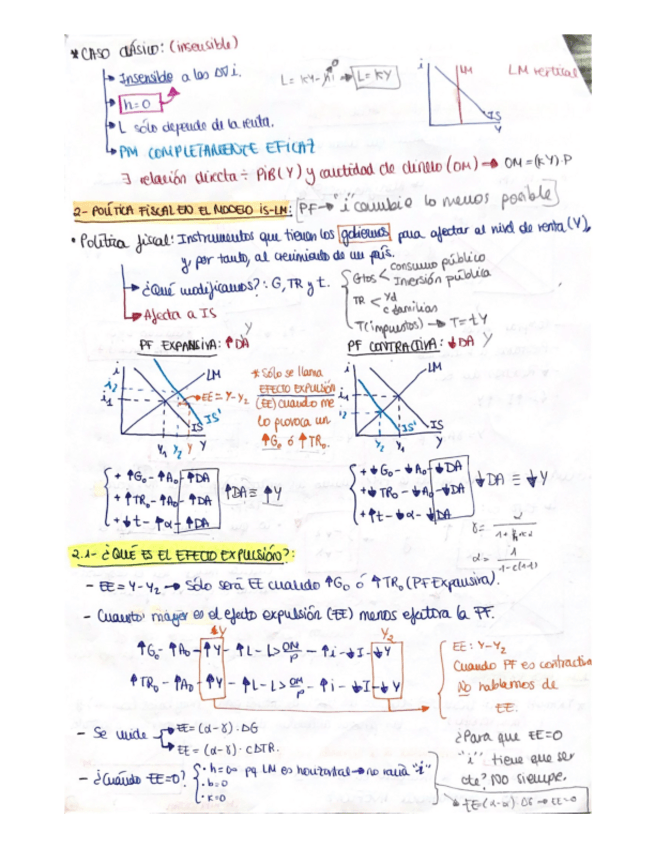 * CASO CLÁSICO: (insensible)
Insensible a los ΔΔ i.
h=0
L = KY - hi → L = KY
0
i
LM
IS
Y
LM vertical
L sólo depende de la renta.
PM COMPLETAMENTE EFICAZ
∃ relación directa ÷ PiB(Y) y cantidad de dinero (OM) → OM = (KY)·P
2- POLÍTICA FISCAL EN EL MODELO IS-LM: [PF → "i" cambie lo menos posible]
• Política fiscal: Instrumentos que tienen los gobiernos para afectar al nivel de renta (Y),
y, por tanto, al crecimiento de un país.
→ ¿Qué modificamos?: G, TR y t.
→ Afecta a IS
Gtos < consumo público
Inversión pública
TR < Yd
c familias
T (impuestos) → T = tY
PF EXPANSIVA: ↑DA Y
PF CONTRACTIVA: ↓DA Y
i
i2
i1
LM
EE = Y - Y2
IS'
IS
Y1 Y2 Y Y
* Sólo se llama
EFECTO EXPULSIÓN
(EE) cuando me
lo provoca un
↑G₀ ó ↑TR₀.
i
i1
i2
LM
IS' IS
Y2 Y1 Y
+ ↑G₀ - ↑A₀ - ↑DA
+ ↑TR₀ - ↑A₀ - ↑DA
+ ↓t - ↑α - ↑DA
↑DA ≡ ↑Y
+ ↓G₀ - ↓A₀ - ↓DA
+ ↓TR₀ - ↓A₀ - ↓DA
+ ↑t - ↓α - ↓DA
↓DA ≡ ↓Y
2.1- ¿QUÉ ES EL EFECTO EXPULSIÓN?:
- EE = Y - Y2 → Sólo será EE cuando ↑G₀ ó ↑TR₀ (PF Expansiva).
- Cuanto mayor es el efecto expulsión (EE) menos efectiva la PF.
Y Y2
↑G₀ - ↑A₀ - ↑Y - ↑L - L > OM/P - ↑i - ↓I - ↓Y
↑TR₀ - ↑A₀ - ↑Y - ↑L - L > OM/P - ↑i - ↓I - ↓Y
EE: Y - Y2
Cuando PF es contractiva
NO hablamos de
EE.
- Se mide → EE = (α - γ) · ΔG
→ EE = (α - γ) · CΔTR.
- ¿Cuándo EE=0?
• h=∞ pq LM es horizontal → no varía "i"
• b=0
• K=0
¿Para que EE=0
"i" tiene que ser
cte? NO siempre.
EE (α-α) ΔG → EE=0